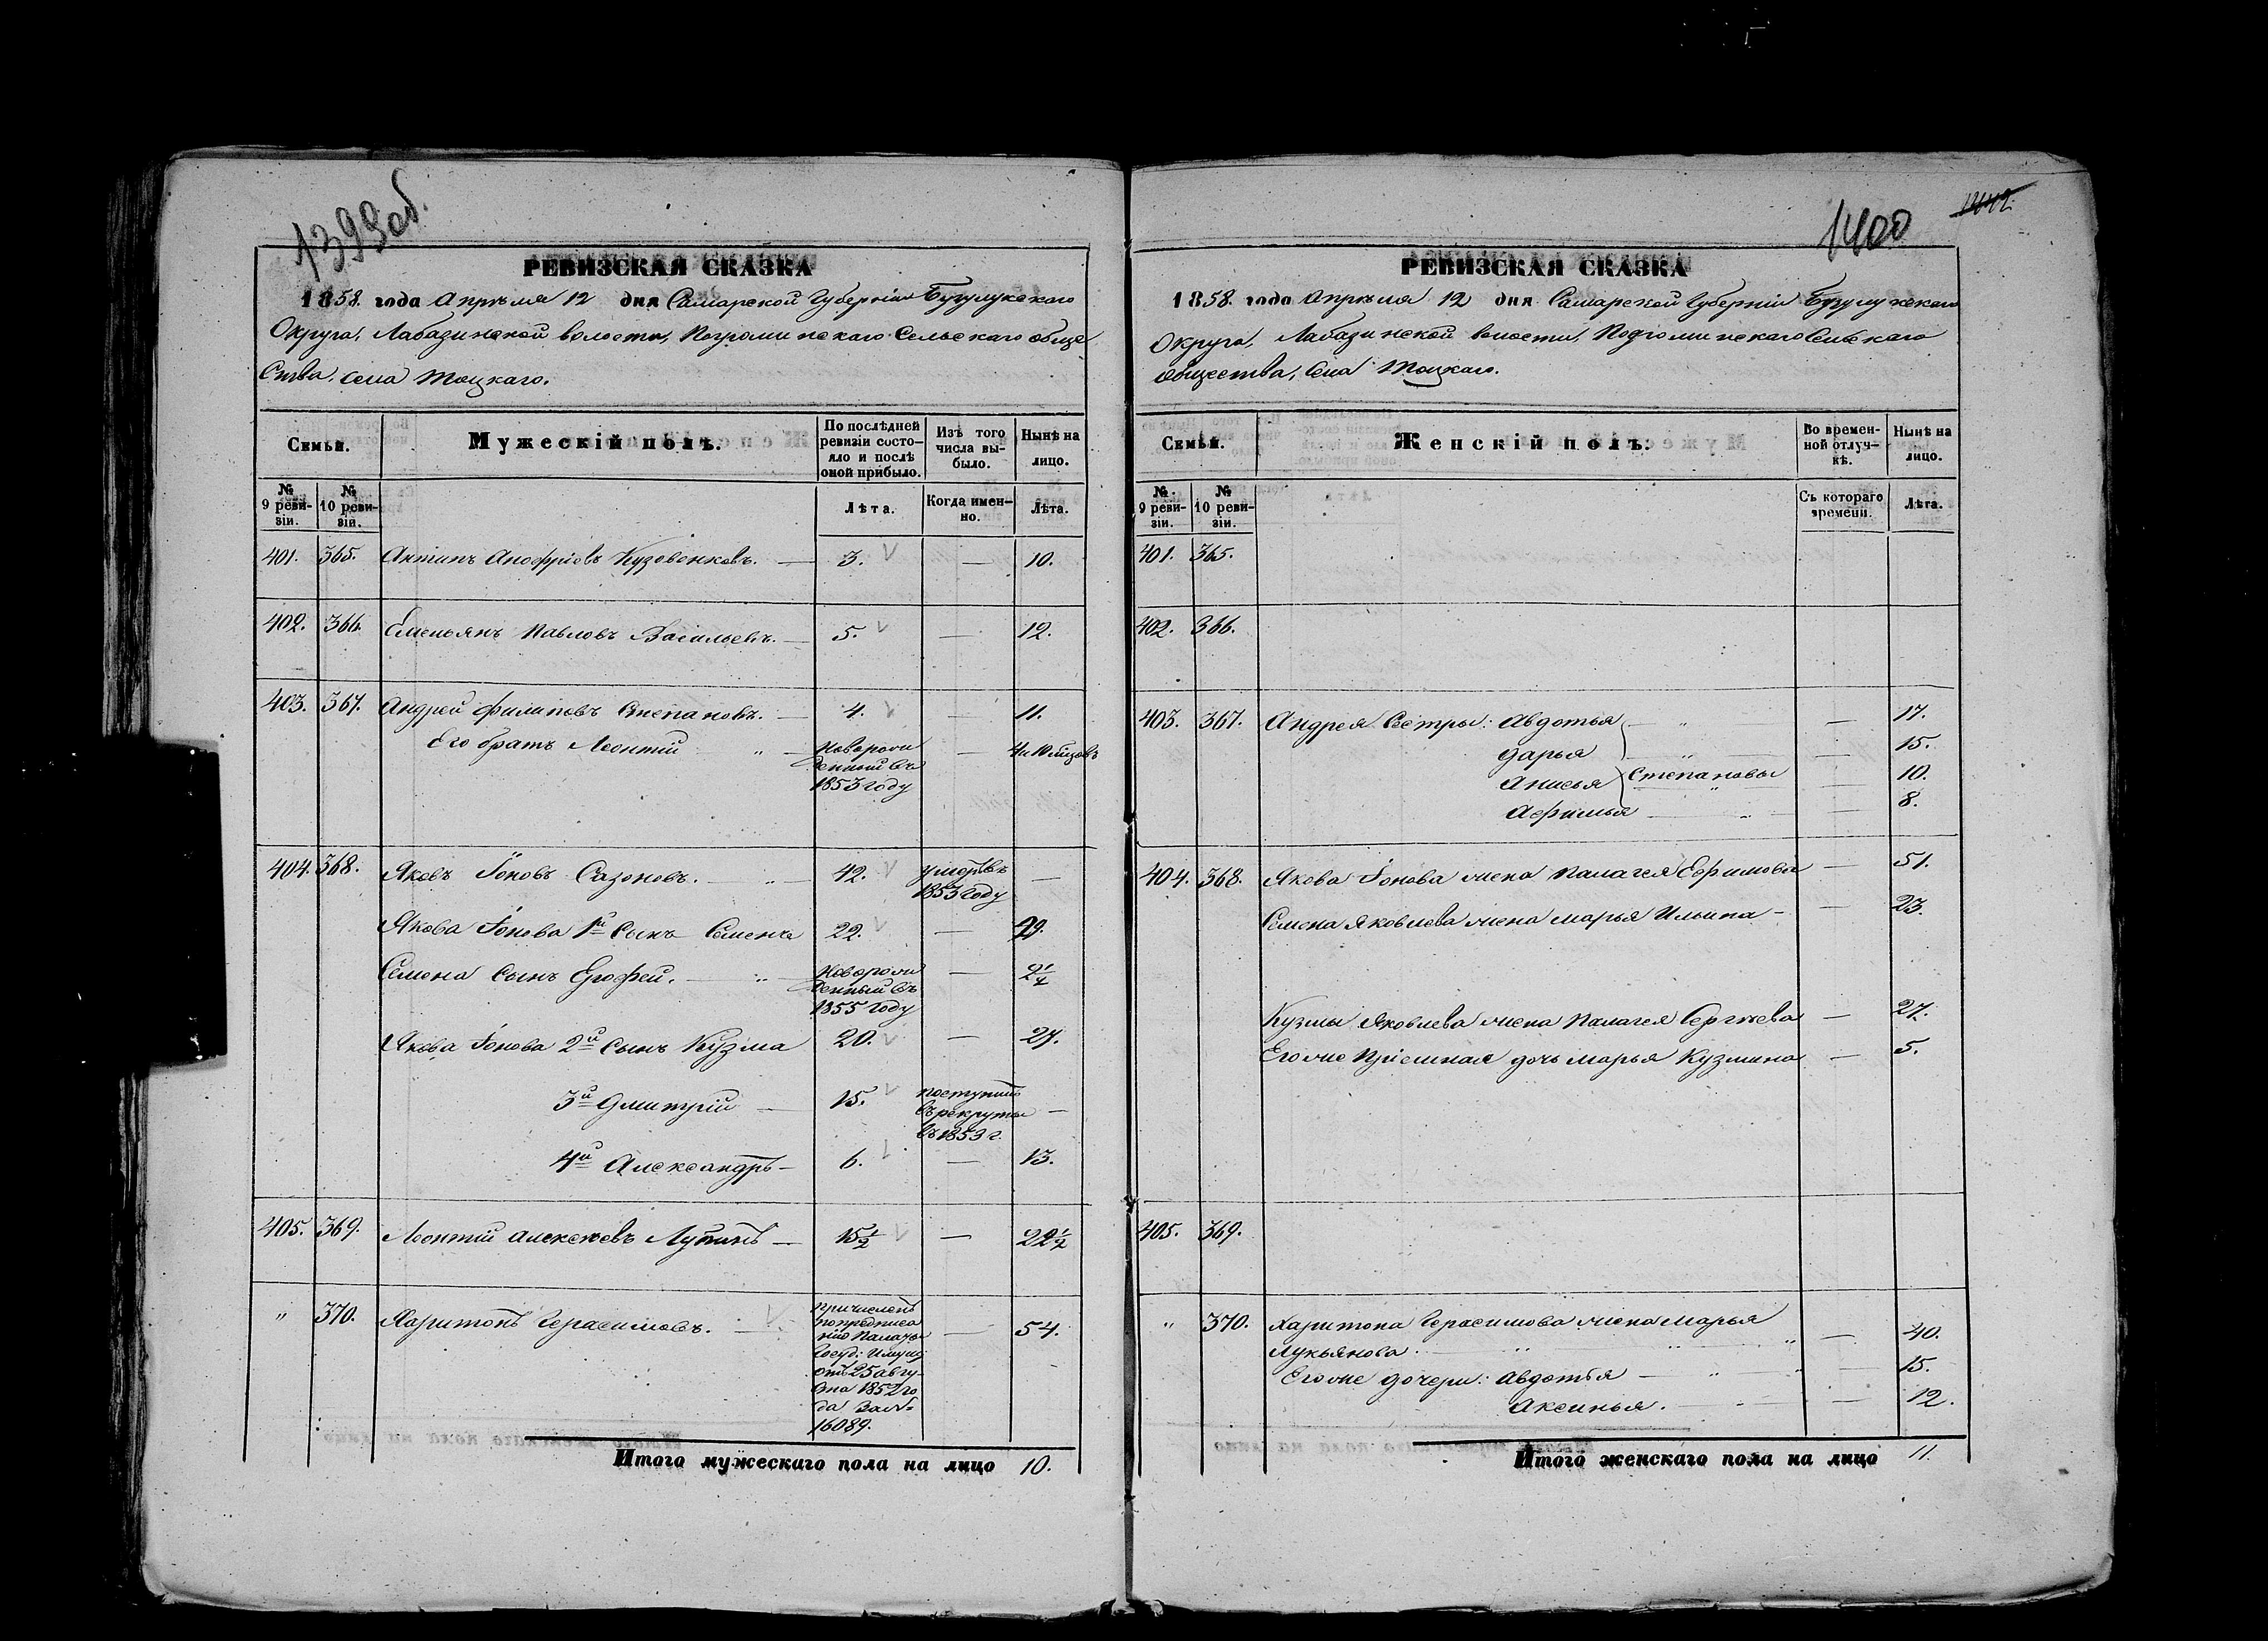 1399об.
РЕВИЗСКАЯ СКАЗКА
1858. года Апрѣля 12 дня Самарской Губерніи Бузулукскаго
Округа, Лабазинской волости, Погроминскаго Сельскаго обще
ства, села Тоцкаго.
Семьи.
Мужескій полъ.
По послѣдней ревизіи состояло и послѣ оной прибыло.
Изъ того числа выбыло.
Нынѣ на лицо.
№ 9 ревизіи.
№ 10 ревизіи.
Лѣта.
Когда именно.
Лѣта.
401. 365. Антипъ Анофріевъ Кузовенковъ. — 3. — 10.
402. 366. Емельянъ Павловъ Васильевъ. — 5. — 12.
403. 367. Андрей Филиповъ Степановъ. — 4. — 11.
Его братъ Леонтій " — новорож
денный въ
1853 году — 4 и 10 мѣсцовъ
404. 368. Яковъ Іоновъ Сазоновъ. — 42. умеръ въ
1853 году —
Якова Іонова 1й сынъ Семенъ 22. — 29.
Семена сынъ Ерофей. " — новорож
денный въ
1855 году — 2½
Якова Іонова 2й сынъ Кузма 20. — 27.
3й Дмитрій — 15. поступилъ
въ рекруты
въ 1853 г. —
4й Александръ — 6. — 13.
405. 369. Леонтій Алексѣевъ — 15½ — 22½
" 370. Харитонъ Герасимовъ. — причисленъ
по предписа
нію Палаты
Госуд: Имущ
отъ 25 авгу
ста 1852 го
да за №
16089. — 54.
Итого мужескаго пола на лицо 10.
1400
РЕВИЗСКАЯ СКАЗКА
1858. года Апрѣля 12 дня Самарской Губерніи Бузулукскаго
Округа, Лабазинской волости, Подгоминскаго Сельскаго
общества, села Тоцкаго.
Семьи.
Женскій полъ.
Во временной отлучкѣ.
Нынѣ на лицо.
№ 9 ревизіи.
№ 10 ревизіи.
Съ котораго времени.
Лѣта.
401. 365.
402. 366.
403. 367. Андрея Сестры: Авдотья — " — 17.
Дарья — " — 15.
Анисья Степановы — 10.
Афимья — " — 8.
404. 368. Якова Іонова жена Палагея Ефимова — 51.
Семена Яковлева жена Марья Ильина — — 23.
Кузмы Яковлева жена Палагея Сергѣева — 27.
Его же Пріемная дочь Марья Кузмина — 5.
405. 369.
" 370. Харитона Герасимова жена Марья
Лукьянова. — " — 40.
Его же дочери: Авдотья — " — 15.
Аксинья. — — 12.
Итого женскаго пола на лицо 11.